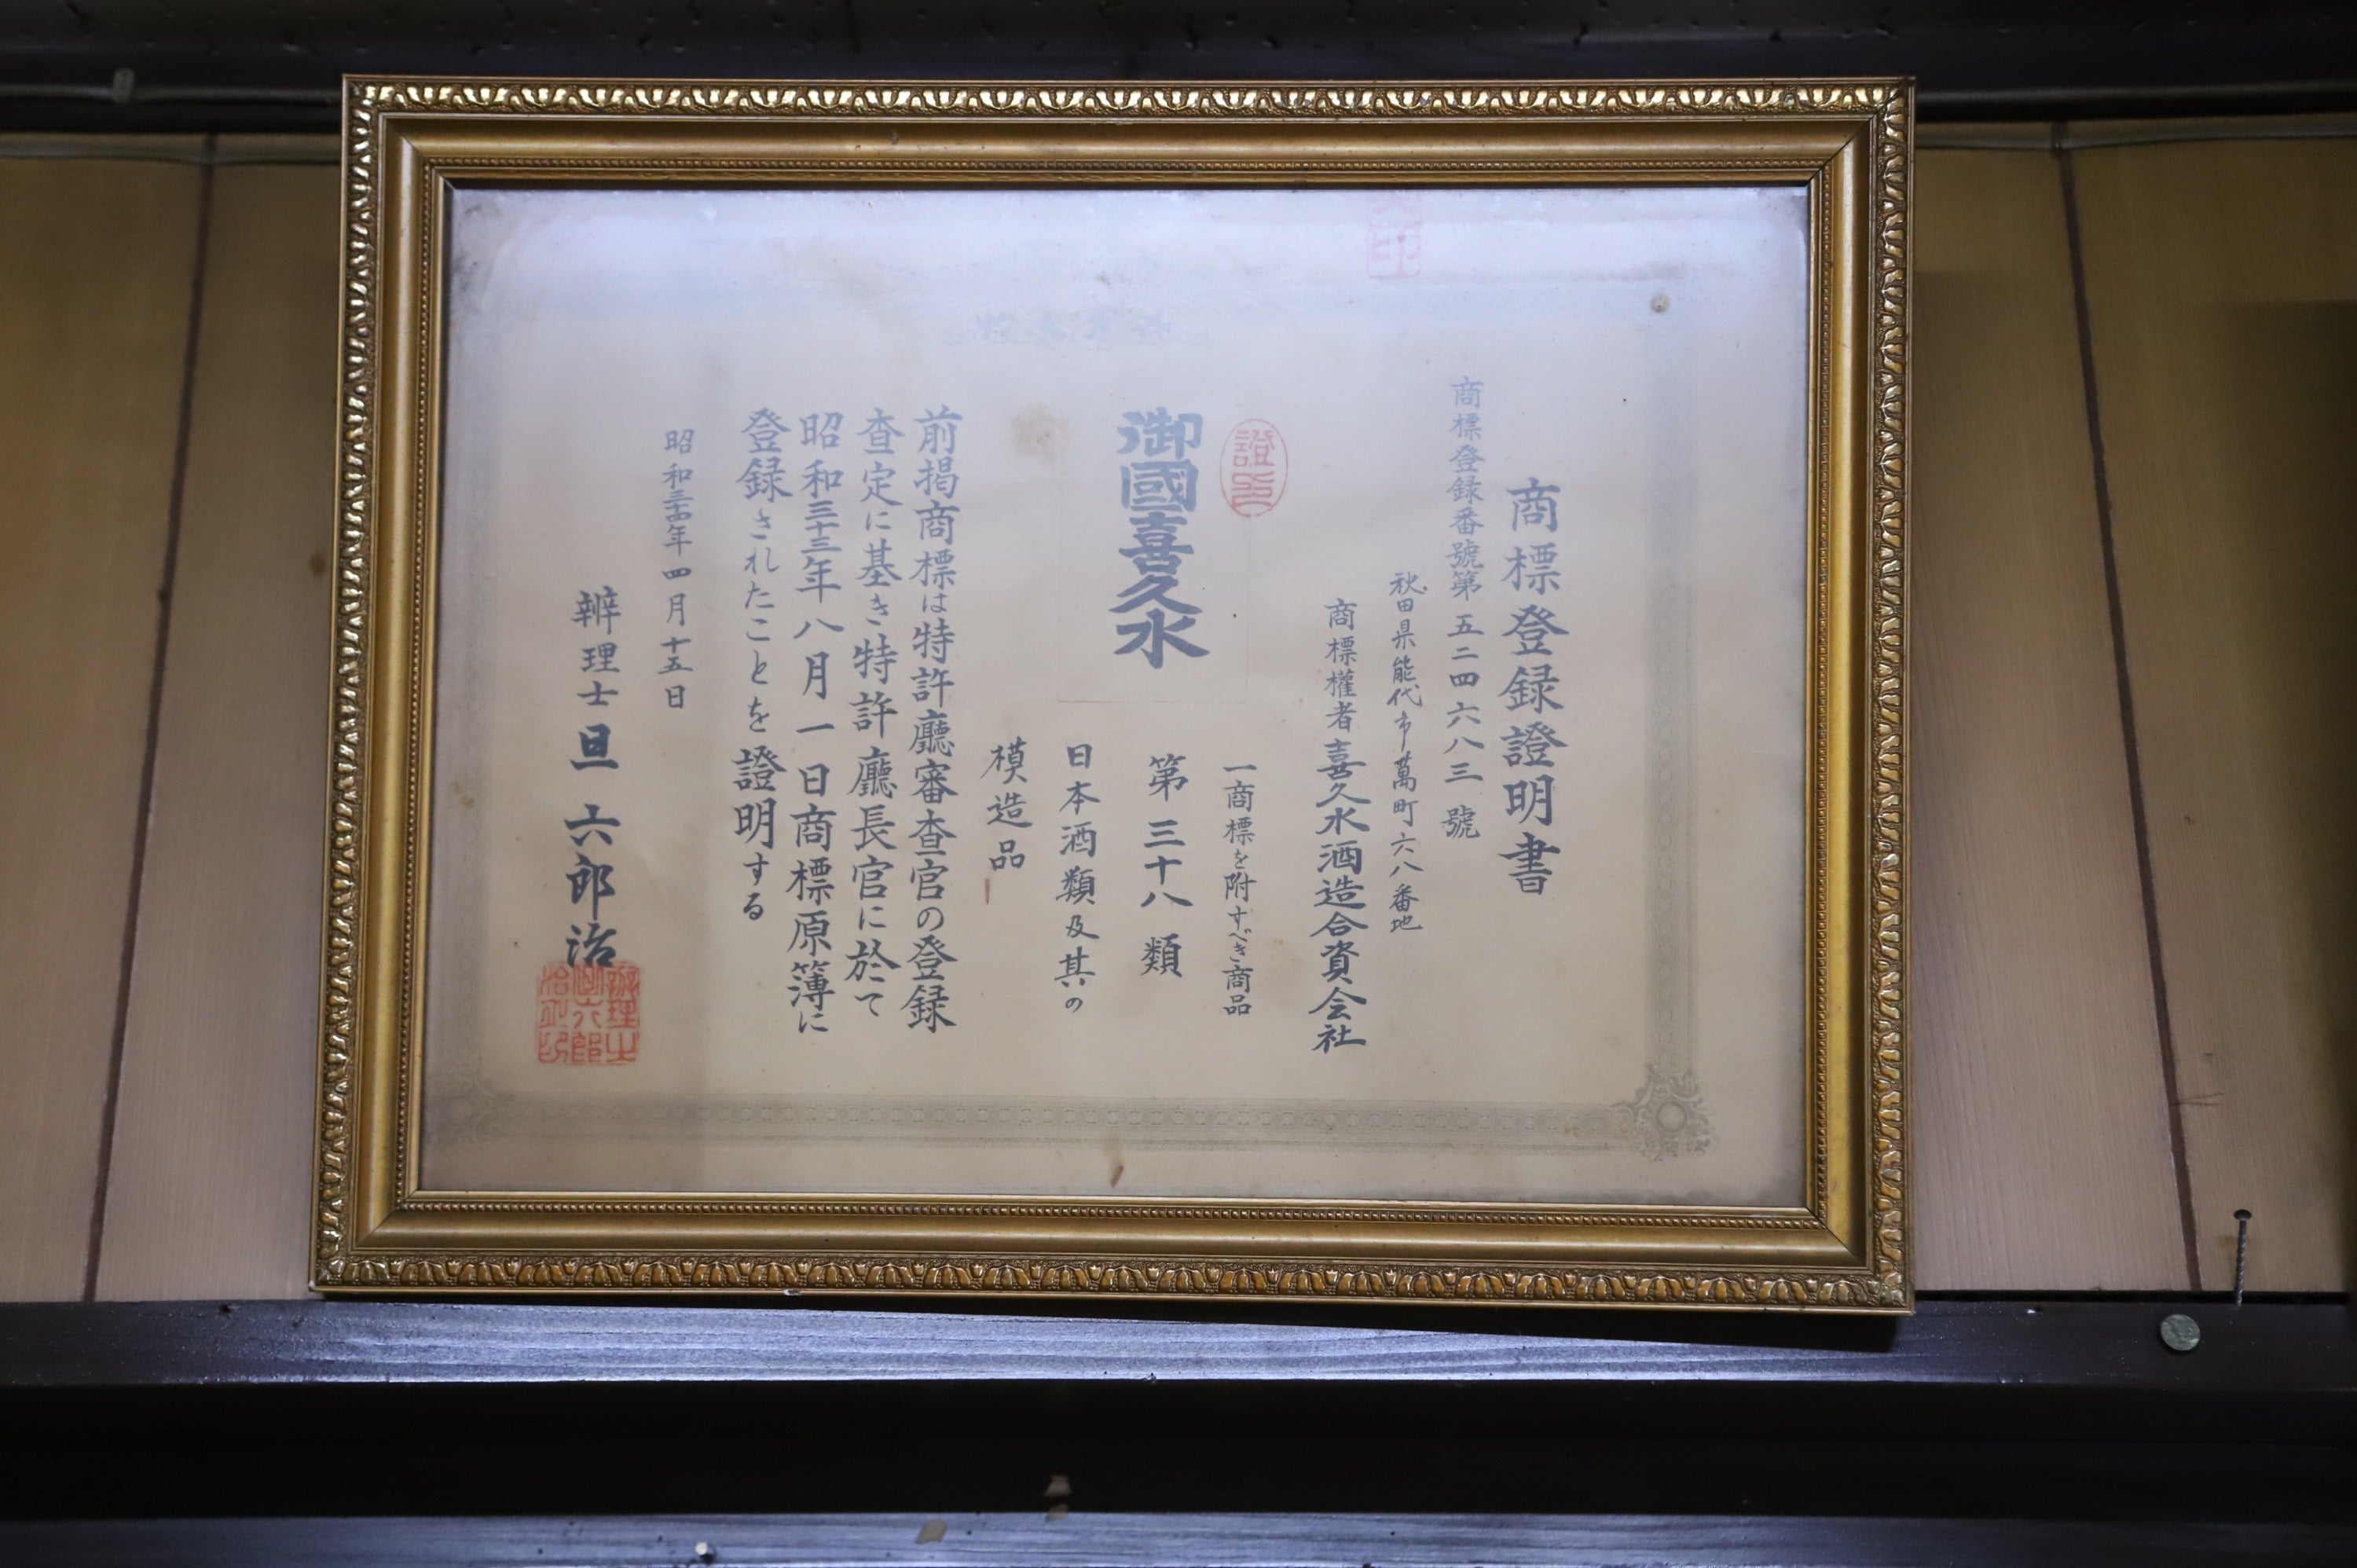 商標登録證明書
商標登録番號第五二四六八三號
秋田県能代市萬町六八番地
商標權者喜久水酒造合資会社
證印
一商標を附すべき商品
御國喜久水
第三十八類
日本酒類及其の
模造品
前掲商標は特許廳審査官の登録
査定に基き特許廳長官に於て
昭和三十三年八月一日商標原簿に
登録されたことを證明する
昭和三十四年四月十五日
辨理士旦六郎治